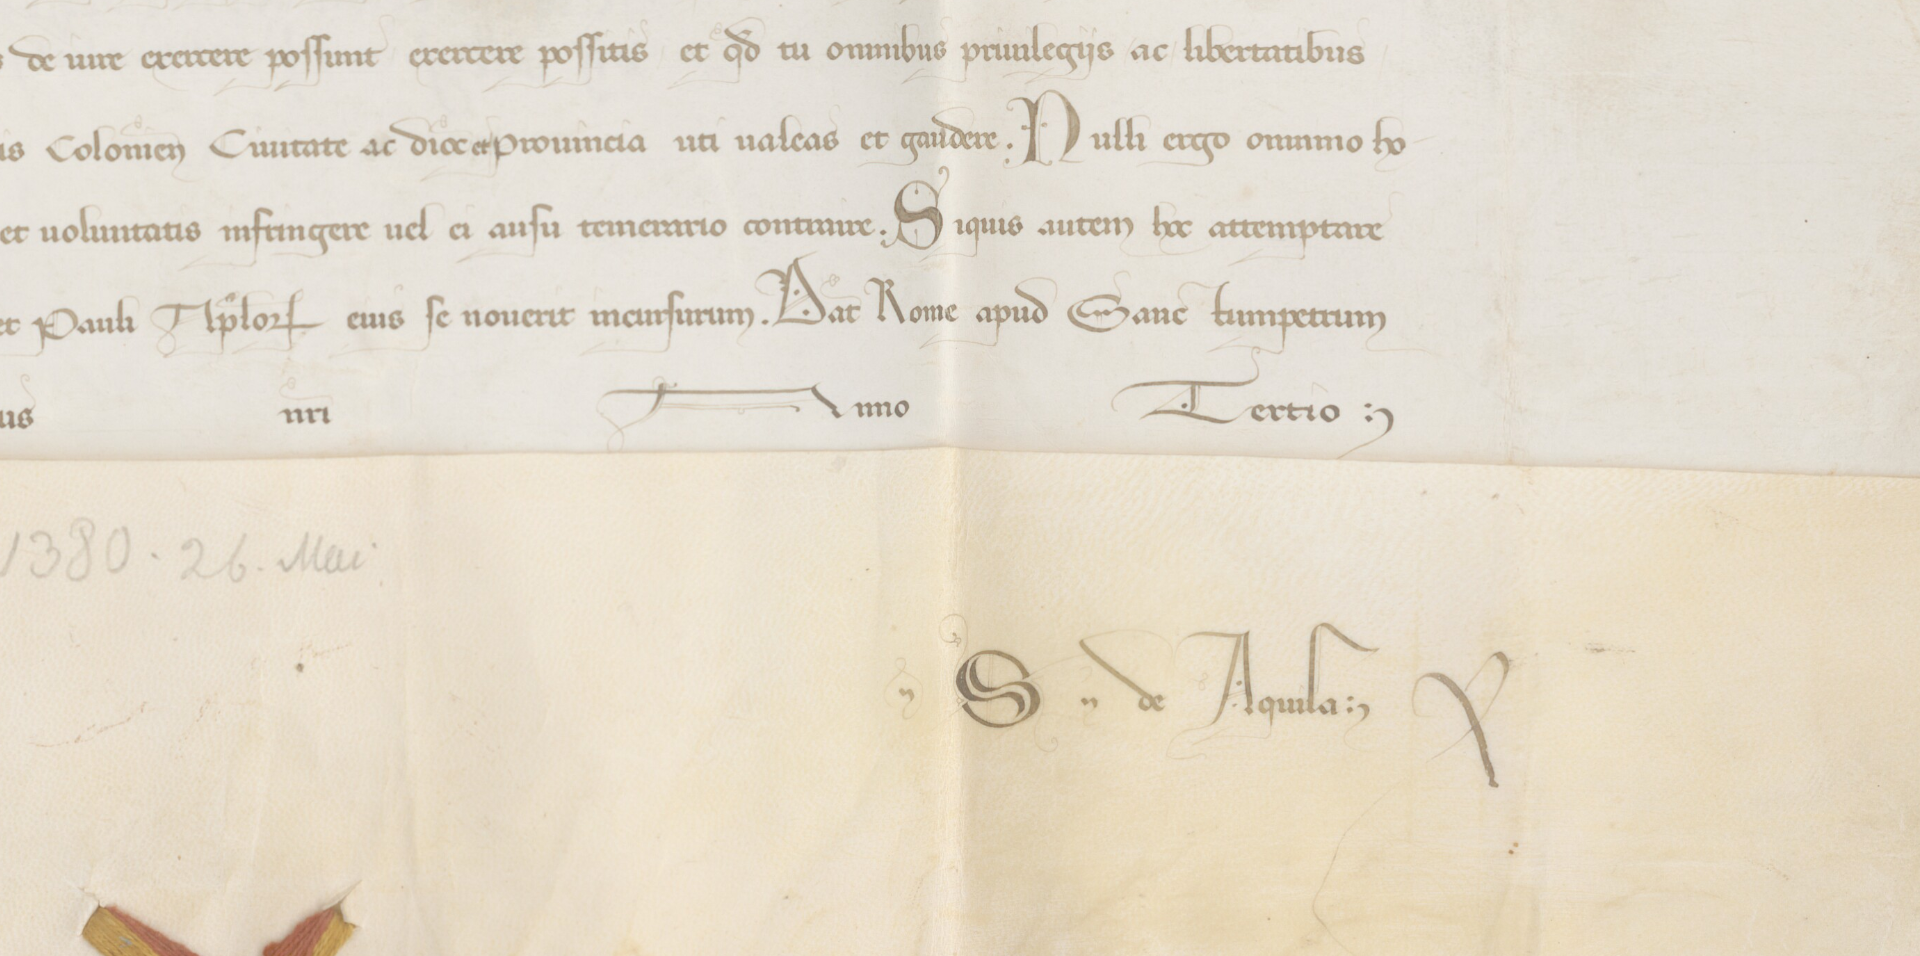 de iure exercere possunt exercere possitis et qd tu omnibus priuilegijs ac libertatibus
is Colonien Ciuitate ac dioc et Prouincia uti ualeas et gaudere. Nulli ergo omnino ho
et uoluntatis infringere uel ei ausu temerario contraire. Siquis autem hoc attemptare
et Pauli Aplorꝝ eius se nouerit incursurum. Dat Rome apud Sanc tumpetrum
us nri Anno Tertio :~
1380. 26. Mai
S de Aquila :~